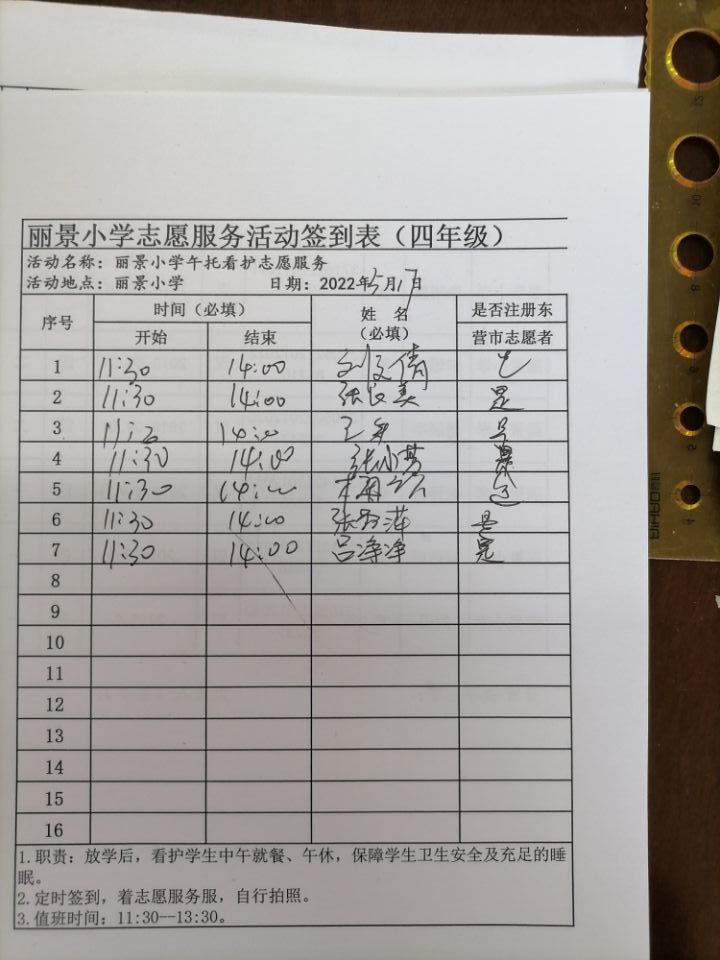 丽景小学志愿服务活动签到表（四年级）
活动名称：丽景小学午托看护志愿服务
活动地点：丽景小学 日期：2022年5月17日
序号 时间（必填） 姓名（必填） 是否注册东营市志愿者
开始 结束
1 11:30 14:00 刘 倩
2 11:30 14:00 张 美 是
3 14:00 王 是
4 11:30 14:00 张小 是
5 11:30 14:00
6 11:30 14:00 张 萍 是
7 11:30 14:00 吕净净 是
8
9
10
11
12
13
14
15
16
1.职责：放学后，看护学生中午就餐、午休，保障学生卫生安全及充足的睡
眠。
2.定时签到，着志愿服务服，自行拍照。
3.值班时间：11:30--13:30。